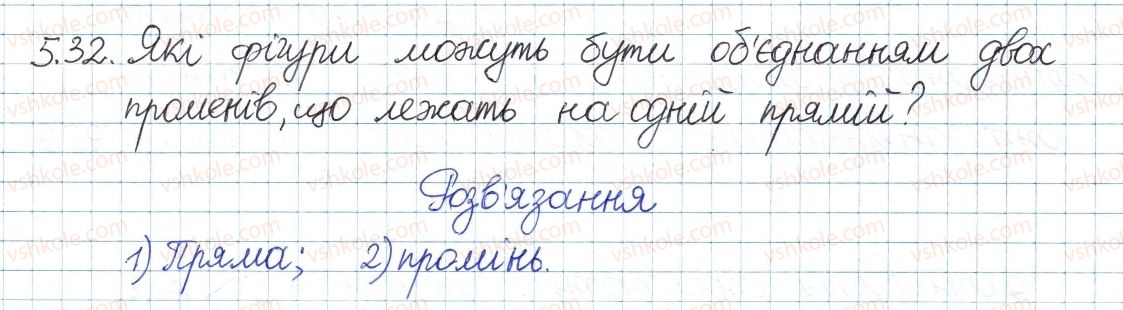 5.32. Які фігури можуть бути об'єднанням двох
променів, що лежать на одній прямій?
Розв'язання
1) Пряма; 2) промінь.